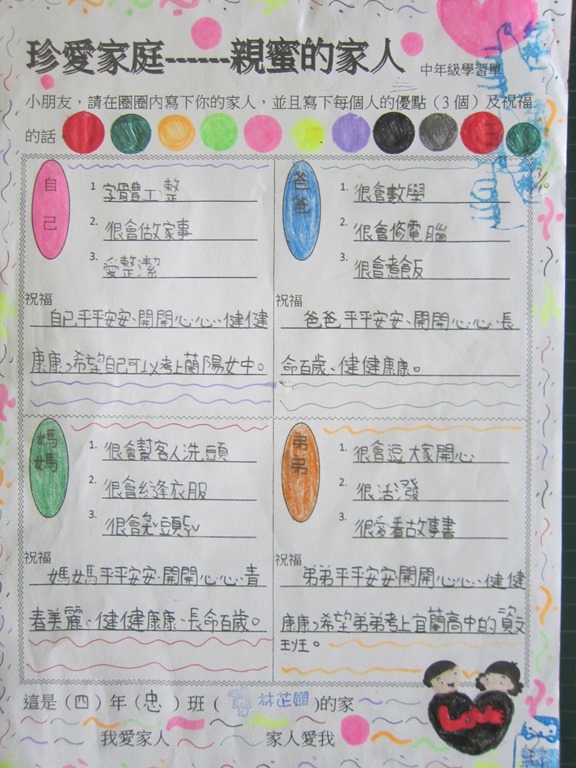 珍愛家庭------親蜜的家人 中年級學習單
小朋友，請在圈圈內寫下你的家人，並且寫下每個人的優點（3個）及祝福
的話
自己
1. 字體工整
2. 很會做家事
3. 愛整潔
祝福
自己平平安安、開開心心、健健
康康，希望自己可以考上蘭陽女中。
爸爸
1. 很會數學
2. 很會修電腦
3. 很會煮飯
祝福
爸爸平平安安、開開心心、長
命百歲、健健康康。
媽媽
1. 很會幫客人洗頭
2. 很會縫衣服
3. 很會剪頭髮
祝福
媽媽平平安安、開開心心、青
春美麗、健健康康、長命百歲。
弟弟
1. 很會逗大家開心
2. 很活潑
3. 很愛看故事書
祝福
弟弟平平安安、開開心心、健健
康康，希望弟弟考上宜蘭高中的資文
班。
這是（四）年（忠）班（林芷嫻）的家
我愛家人 家人愛我